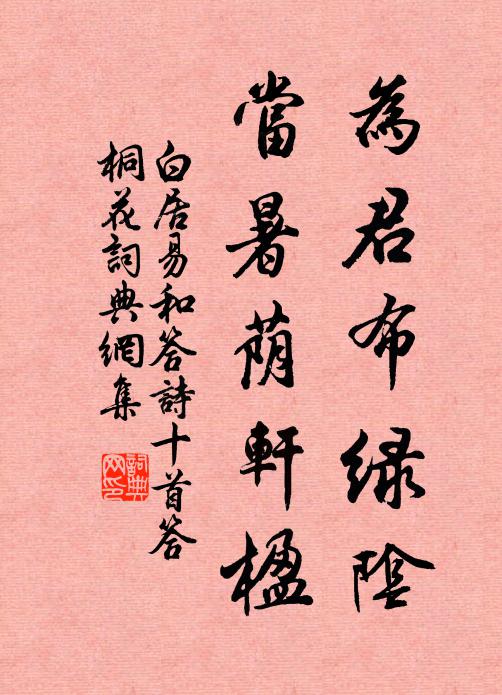 為君布緑陰
當暑蔭軒楹
白居易和答詩十首答
桐花詞典網集
詞典网印